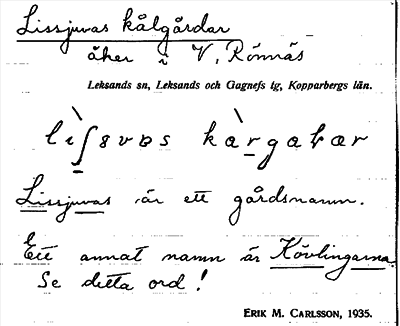 Lissjuvas kålgårdar
åker i V. Rönnäs
Leksands sn, Leksands och Gagnefs tg, Kopparbergs län.
Lissjuvas är ett gårdsnamn.
Ett annat namn är Kövlingarna.
Se detta ord!
ERIK M. CARLSSON, 1935.